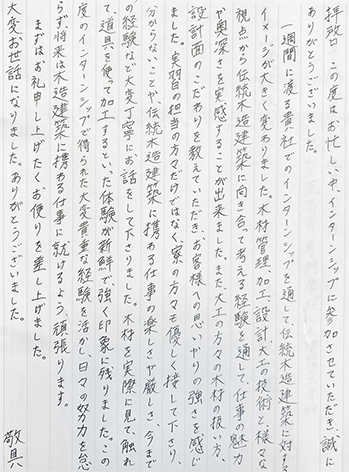 拝啓 この度はお忙しい中、インターンシップに参加させていただき、誠に
ありがとうございました。
一週間に渡る貴社でのインターンシップを通して伝統木造建築に対する
イメージが大きく変わりました。木材管理、加工、設計、大工の技術と様々な
視点から伝統木造建築に向き合って考える経験を通して、仕事の魅力
や奥深さを実感することが出来ました。また、大工の方々の木材の扱い方、
設計面のこだわりを教えていただき、お客様への思いやりの強さを感じ
ました。実習の担当の方々だけではなく、寮の方々も優しく接して下さり、
分からないことや伝統木造建築に携わる仕事の楽しさや厳しさ、今まで
の経験など大変丁寧にお話をして下さりました。木材を実際に見て、触れ
て、道具を使って加工するといった体験が新鮮で、強く印象に残りました。この
度のインターンシップで得られた大変貴重な経験を活かし、日々の努力を怠
らず、将来は木造建築に携わる仕事に就けるよう、頑張ります。
まずはお礼申し上げたくお便りを差し上げました。
大変お世話になりました。ありがとうございました。
敬具